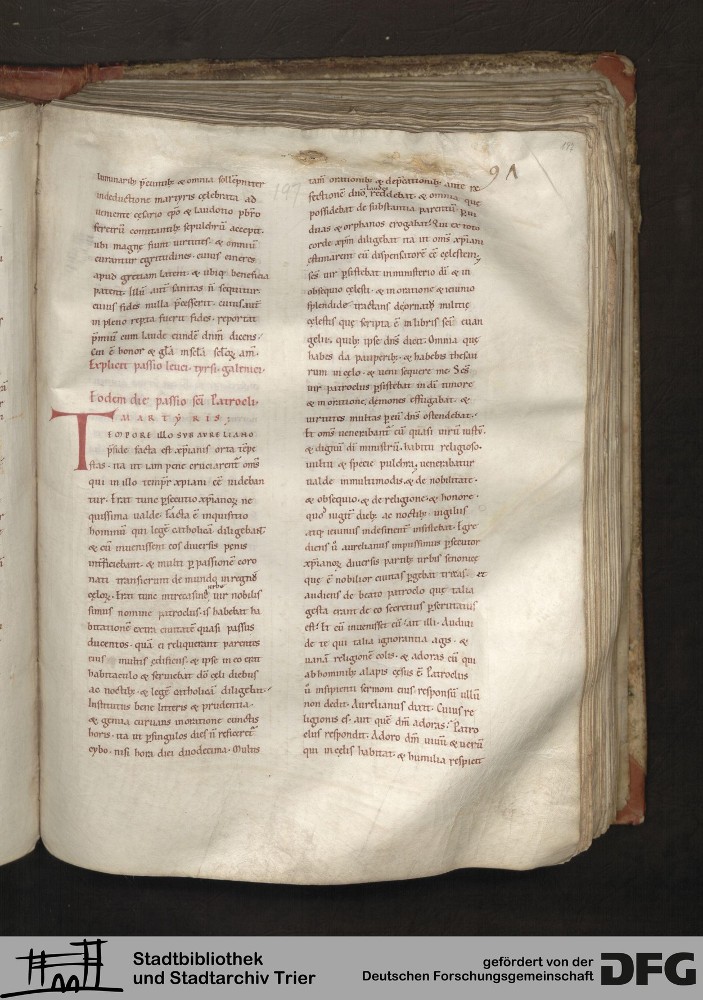 luminarib; p̄euntib; & omnia sollēpniter
indeductione martyris celebrita. ad
ueniente cesario ep̄o & laudotio pb̄ro
feretrū comitantib; sepulchrū accepit.
ubi magne fiunt uirtutes. & omniū
curantur egritudines. cuius cineres
apud gretiam latent. & ubiq; beneficia
patent. Illū aut̄ sanitas n̄ sequitur.
cuius fides nulla p̄cesserit. cuius aut̄
in pleno reperta fuerit fides. reportat
p̄miū cum laude eundē dn̄m dicens.
Cui ē honor & gl̄a in sc̄la sc̄lor̄. am̄.
Explicit passio leuci. tyrsi. galenici.
Eodem die passio sc̄i Patrocli.
MARTYRIS;
TEMPORE illo SVB AVRELIANO
p̄side facta est xp̄ianis orta tēpe
stas. ita ut iam pene cruciarent̄ om̄s
qui in illo tempr̄ xp̄iani eē uideban
tur. Erat tunc p̄secutio xp̄ianor̄ ne
quissima ualde. Facta ē inquisitio
hominū qui legē catholicā diligebant
& cū inuenissent eos diuersis penis
int̄ficiebant. & multi p̄ passionē coro
nati transierunt de mundo in regnū
celor̄. Erat tunc in trecasina urbe uir nobilis
simus nomine patroclus. is habebat ha
bitationē extra ciuitatē quasi passus
ducentos. quā ei reliquerant parentes
eius multis edificiis. & ipse in eo erat
habitaculo & seruiebat dō celi diebus
ac noctib; & legē catholicā diligebat.
Institutus bene litteris & prudentia.
& genua curuans in oratione cunctis
horis. ita ut p̄ singulos dies n̄ reficeret̄
cybo. nisi hora diei duodecima. Multis
91
197
187
tam̄ orationib; & dep̄cationib; ante re
fectionē dn̄o laudes reddebat. & omnia que
possidebat de substantia parentū. Ui
duas & orphanos erogabat. Qui ex toto
corde xp̄m diligebat ita ut om̄s xp̄iani
estimarent eū dispensatorē eē celestem.
Sc̄s uir p̄sistebat in ministerio dī & in
obsequio celesti. & in oratione & ieiunio
splendide tractans de ornatib; militie
celestis que scripta ē in libris sc̄i euan
gelii. quib; ipse dn̄s dicit. Omnia que
habes da pauperib; & habebis thesau
rum in celo. & ueni sequere me. Sc̄s
uir patroclus p̄sistebat in dī timore
& in oratione. demones effugabat. &
uirtutes multas p̄ eū dn̄s ostendebat.
Et om̄s uenerabant̄ eū quasi uirū iustū.
& dignū dī ministrū. habitu religioso.
uultu & specie pulchra. uenerabatur
ualde in multimodis & de nobilitate.
& obsequio. & de religione. & honore.
quo iugit̄ dieb; ac noctib; uigiliis
atq; ieiuniis indesinent̄ insistebat. Egre
diens ū aurelianus impiissimus p̄secutor
xp̄ianor̄ diuersis partib; urbis senonice
que ē nobilior ciuitas p̄gebat trecas. et
audiens de beato patroclo que talia
gesta erant de eo secretius p̄scrutatus
est. Et cū inuenisset eū. ait illi. Audiui
de te qui talia ignorantia agis. &
uanā religionē colis. & adoras eū qui
ab hominib; alapis cesus ē. Patroclus
ū insipienti sermoni eius responsū ullū
non dedit. Aurelianus dixit. Cuius re
ligionis es. aut quē dm̄ adoras? Patro
clus respondit. Adoro dm̄ uiuū & uerū
qui in celis habitat & humilia respicit
Stadtbibliothek
und Stadtarchiv Trier
gefördert von der
Deutschen Forschungsgemeinschaft
DFG